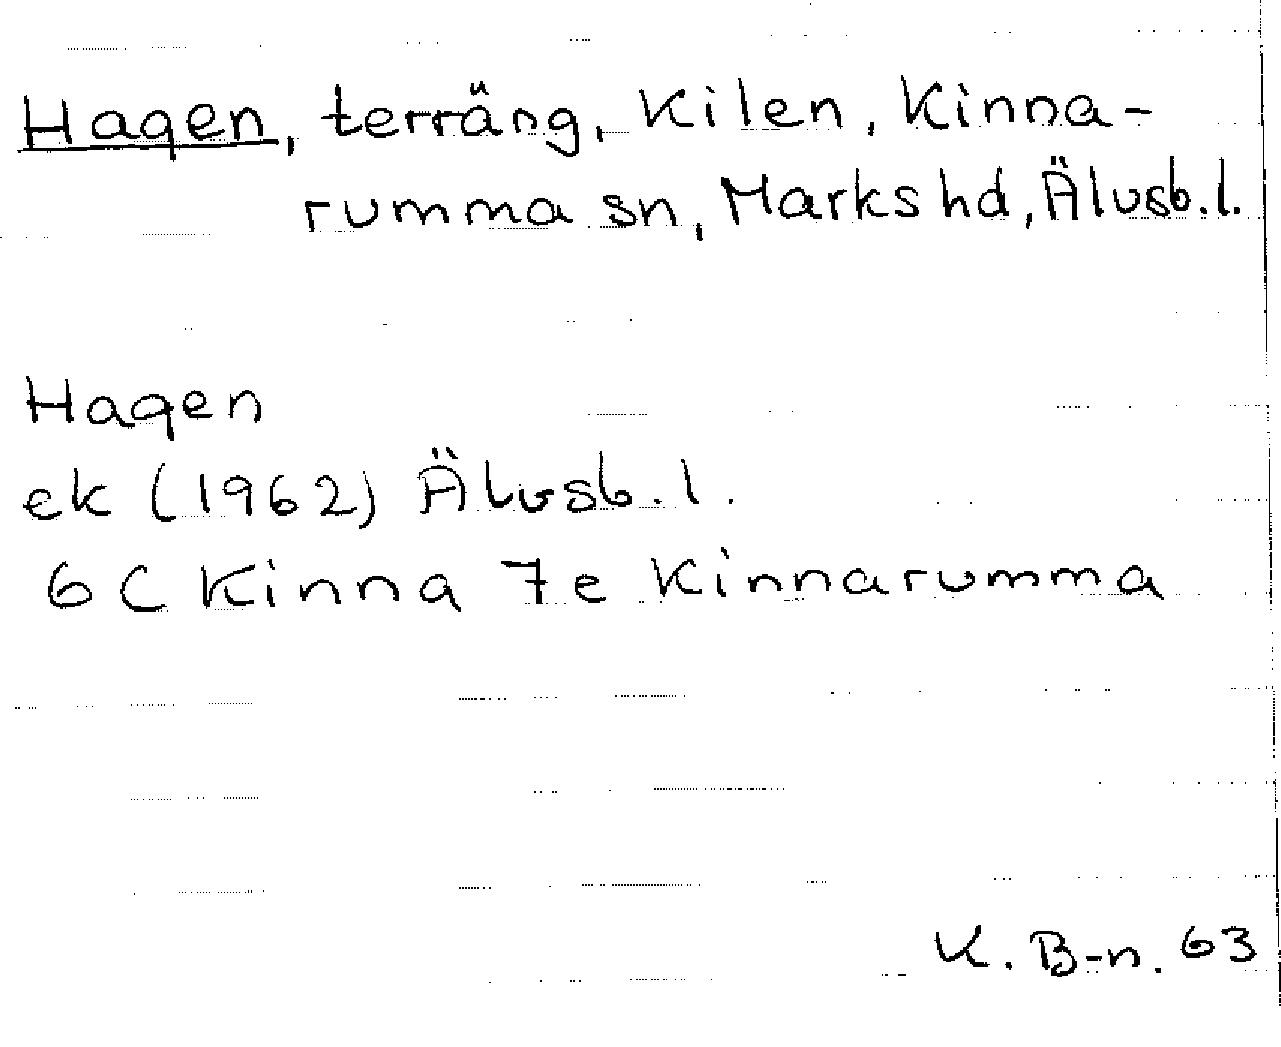 Hagen, terräng, Kilen, Kinna-
rumma sn, Marks hd, Älvsb.l.
Hagen
ek (1962) Älvsb.l.
6C Kinna 7e Kinnarumma
K.B-n.63